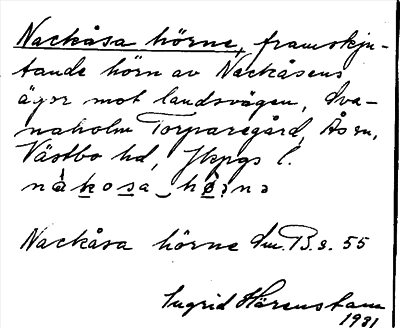 Nackåsa hörne, framskju-
tande hörn av Nackåsens
ägor mot landsvägen, dva-
naholm Torparegård, Ås sn,
Västbo hd, Jkpgs l.
Nackåsa hörne dm. B. s. 55
Ingrid Härenstam
1931